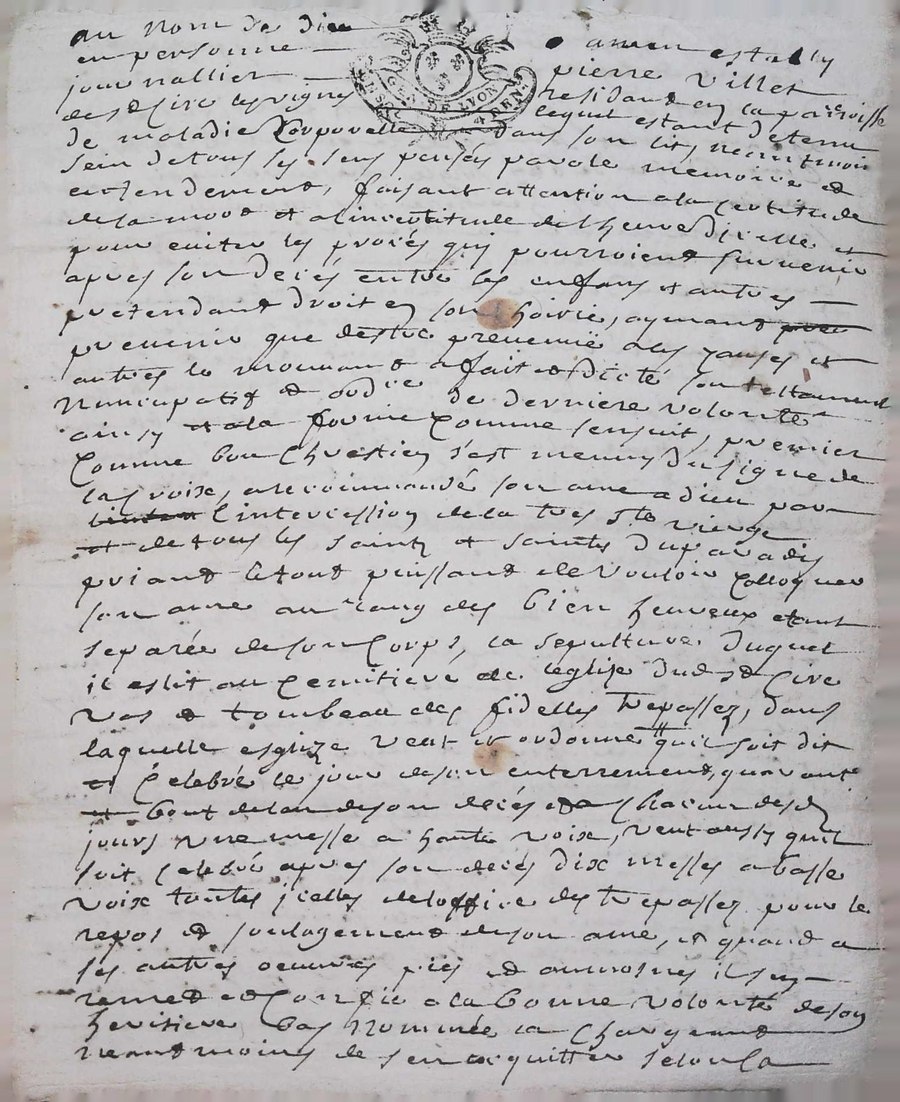 au nom de dieu amen estably
en personne pierre villet
journallier residant en la parroisse
de st Cire les vignes lequel estant detenu
de maladie Corporelle dans son lit neantmoin
sein de tous ses sens pensés parole memoire et
entendement, faisant attantion a la certitude
de la mort et a lincertitude de lheure dicelle et
pour eviter les procés qui pourroient survenir
apres son decés entre les enfans et autres
pretendant droit en son hoirie, aymant
prevenir que destre prevenu a ses causes et
autres le mouvant a fait et dicté son testament
Nuncupatif et ordre de derniere volonté
ainsy et a la forme Comme sensuit, premier
Comme bon Chrestien s'est meuny du signe de
la Croix, a recommandé son ame a dieu par
l'intercession de la tres ste vierge
et de tous les saints et saintes du paradis
priant le tout puissant de vouloir Colloquer
son ame au rang des bien heureux estant
separée de son Corps, la sepulture duquel
il eslit au Cemitiere de leglise dud st Cire
vas et tombeau des fidelles trepassez, dans
laquelle esglize veut et ordonne quil soit dit
et Celebré le jour de son enterrement, quarante
et bout de lan de son decés Chacun desd
jours une messe a haute voix, veut aussy quil
soit Celebré apres son decés dix messes a basse
voix toutes jcelles de loffice des trepassez pour le
repos et soulagement de son ame, et quand a
ses autres oeuvres pies et aumosnes il sen
remet et Confie a la bonne volonté de son
heritiere bas nommée la Chargeant
neantmoins de sen acquitter selon sa
GEN DE LYON